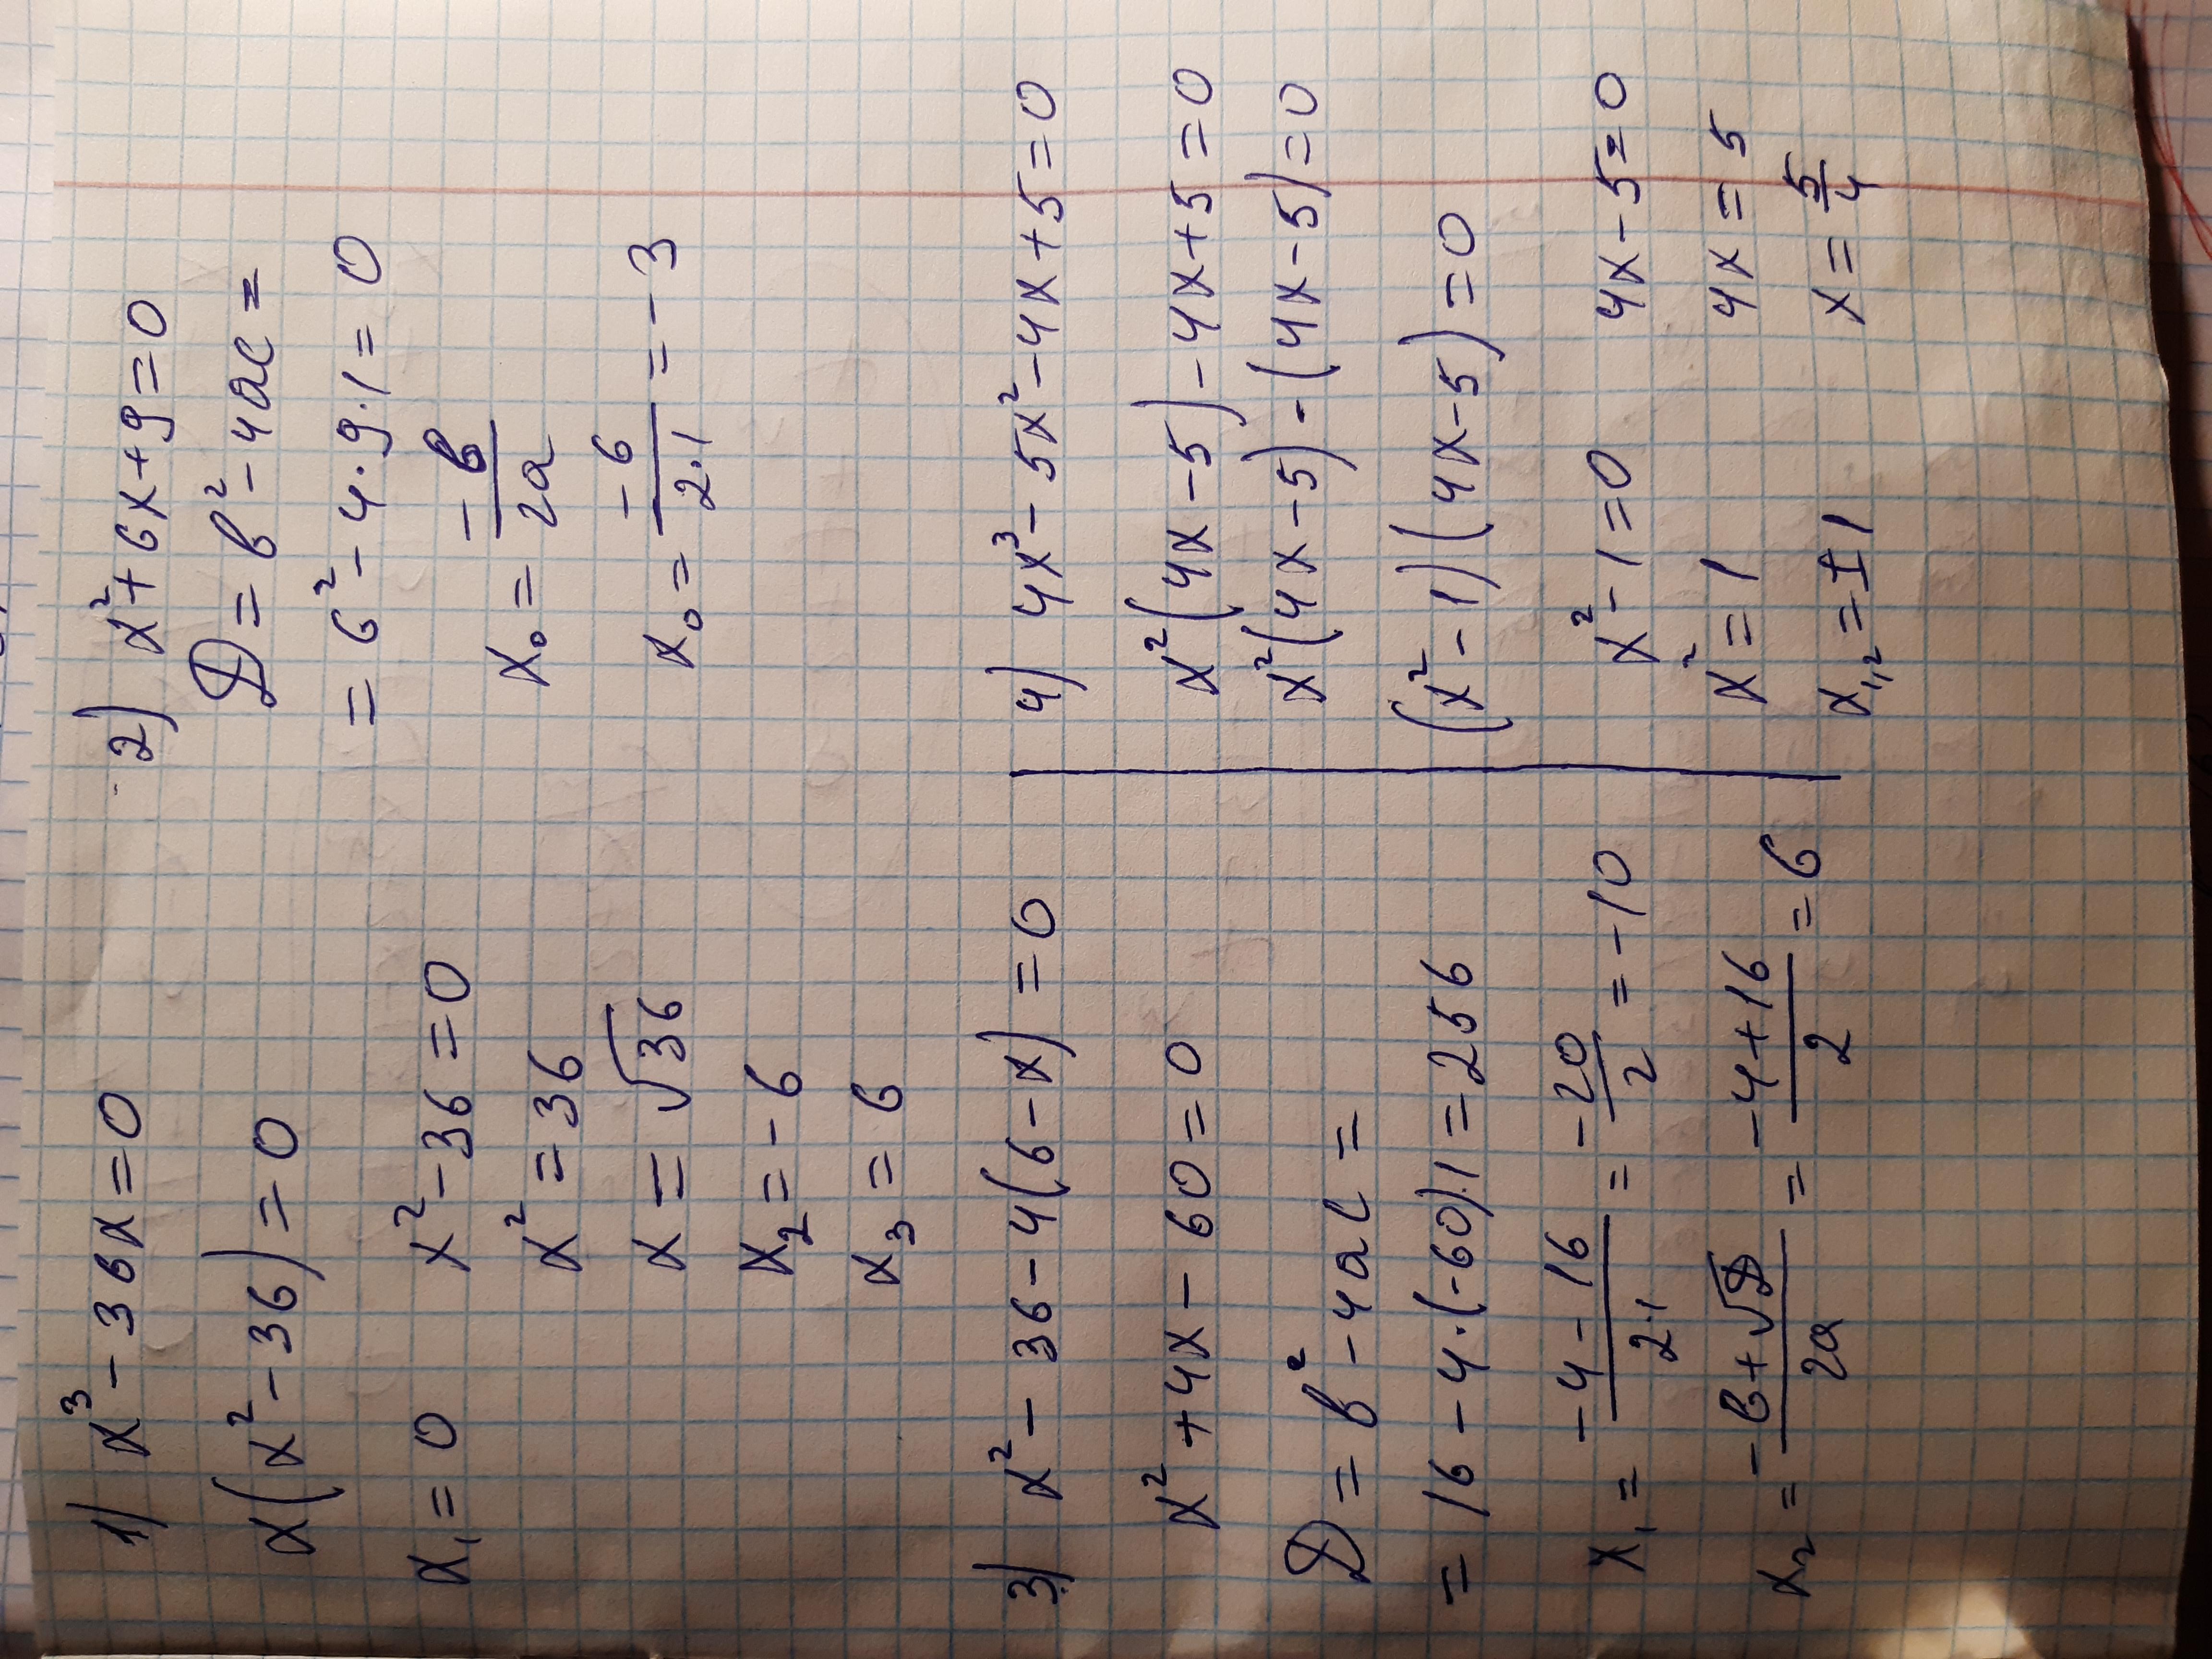 1) x³ - 36x = 0
x(x² - 36) = 0
x₁ = 0    x² - 36 = 0
x² = 36
x = √36
x₂ = -6
x₃ = 6
2) x² + 6x + 9 = 0
D = b² - 4ac =
= 6² - 4·9·1 = 0
x₀ = -b/2a
x₀ = -6/2·1 = -3
3) x² - 36 - 4(6 - x) = 0
x² + 4x - 60 = 0
D = b² - 4ac =
= 16 - 4·(-60)·1 = 256
x₁ = -4-16/2·1 = -20/2 = -10
x₂ = -b+√D/2a = -4+16/2 = 6
4) 4x³ - 5x² - 4x + 5 = 0
x²(4x - 5) - 4x + 5 = 0
x²(4x - 5) - (4x - 5) = 0
(x² - 1)(4x - 5) = 0
x² - 1 = 0    4x - 5 = 0
x² = 1    4x = 5
x₁,₂ = ±1    x = 5/4